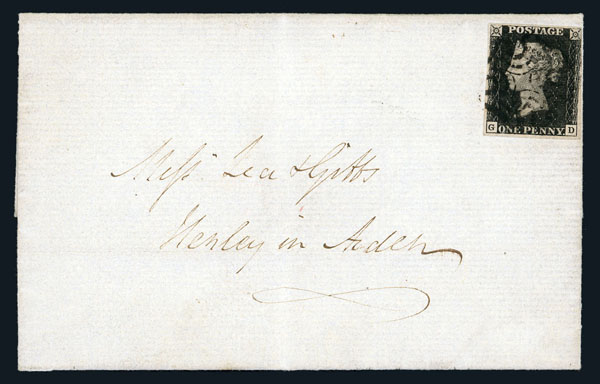 POSTAGE
G ONE PENNY D
Messrs Lea & Gibbs
Henley in Arden